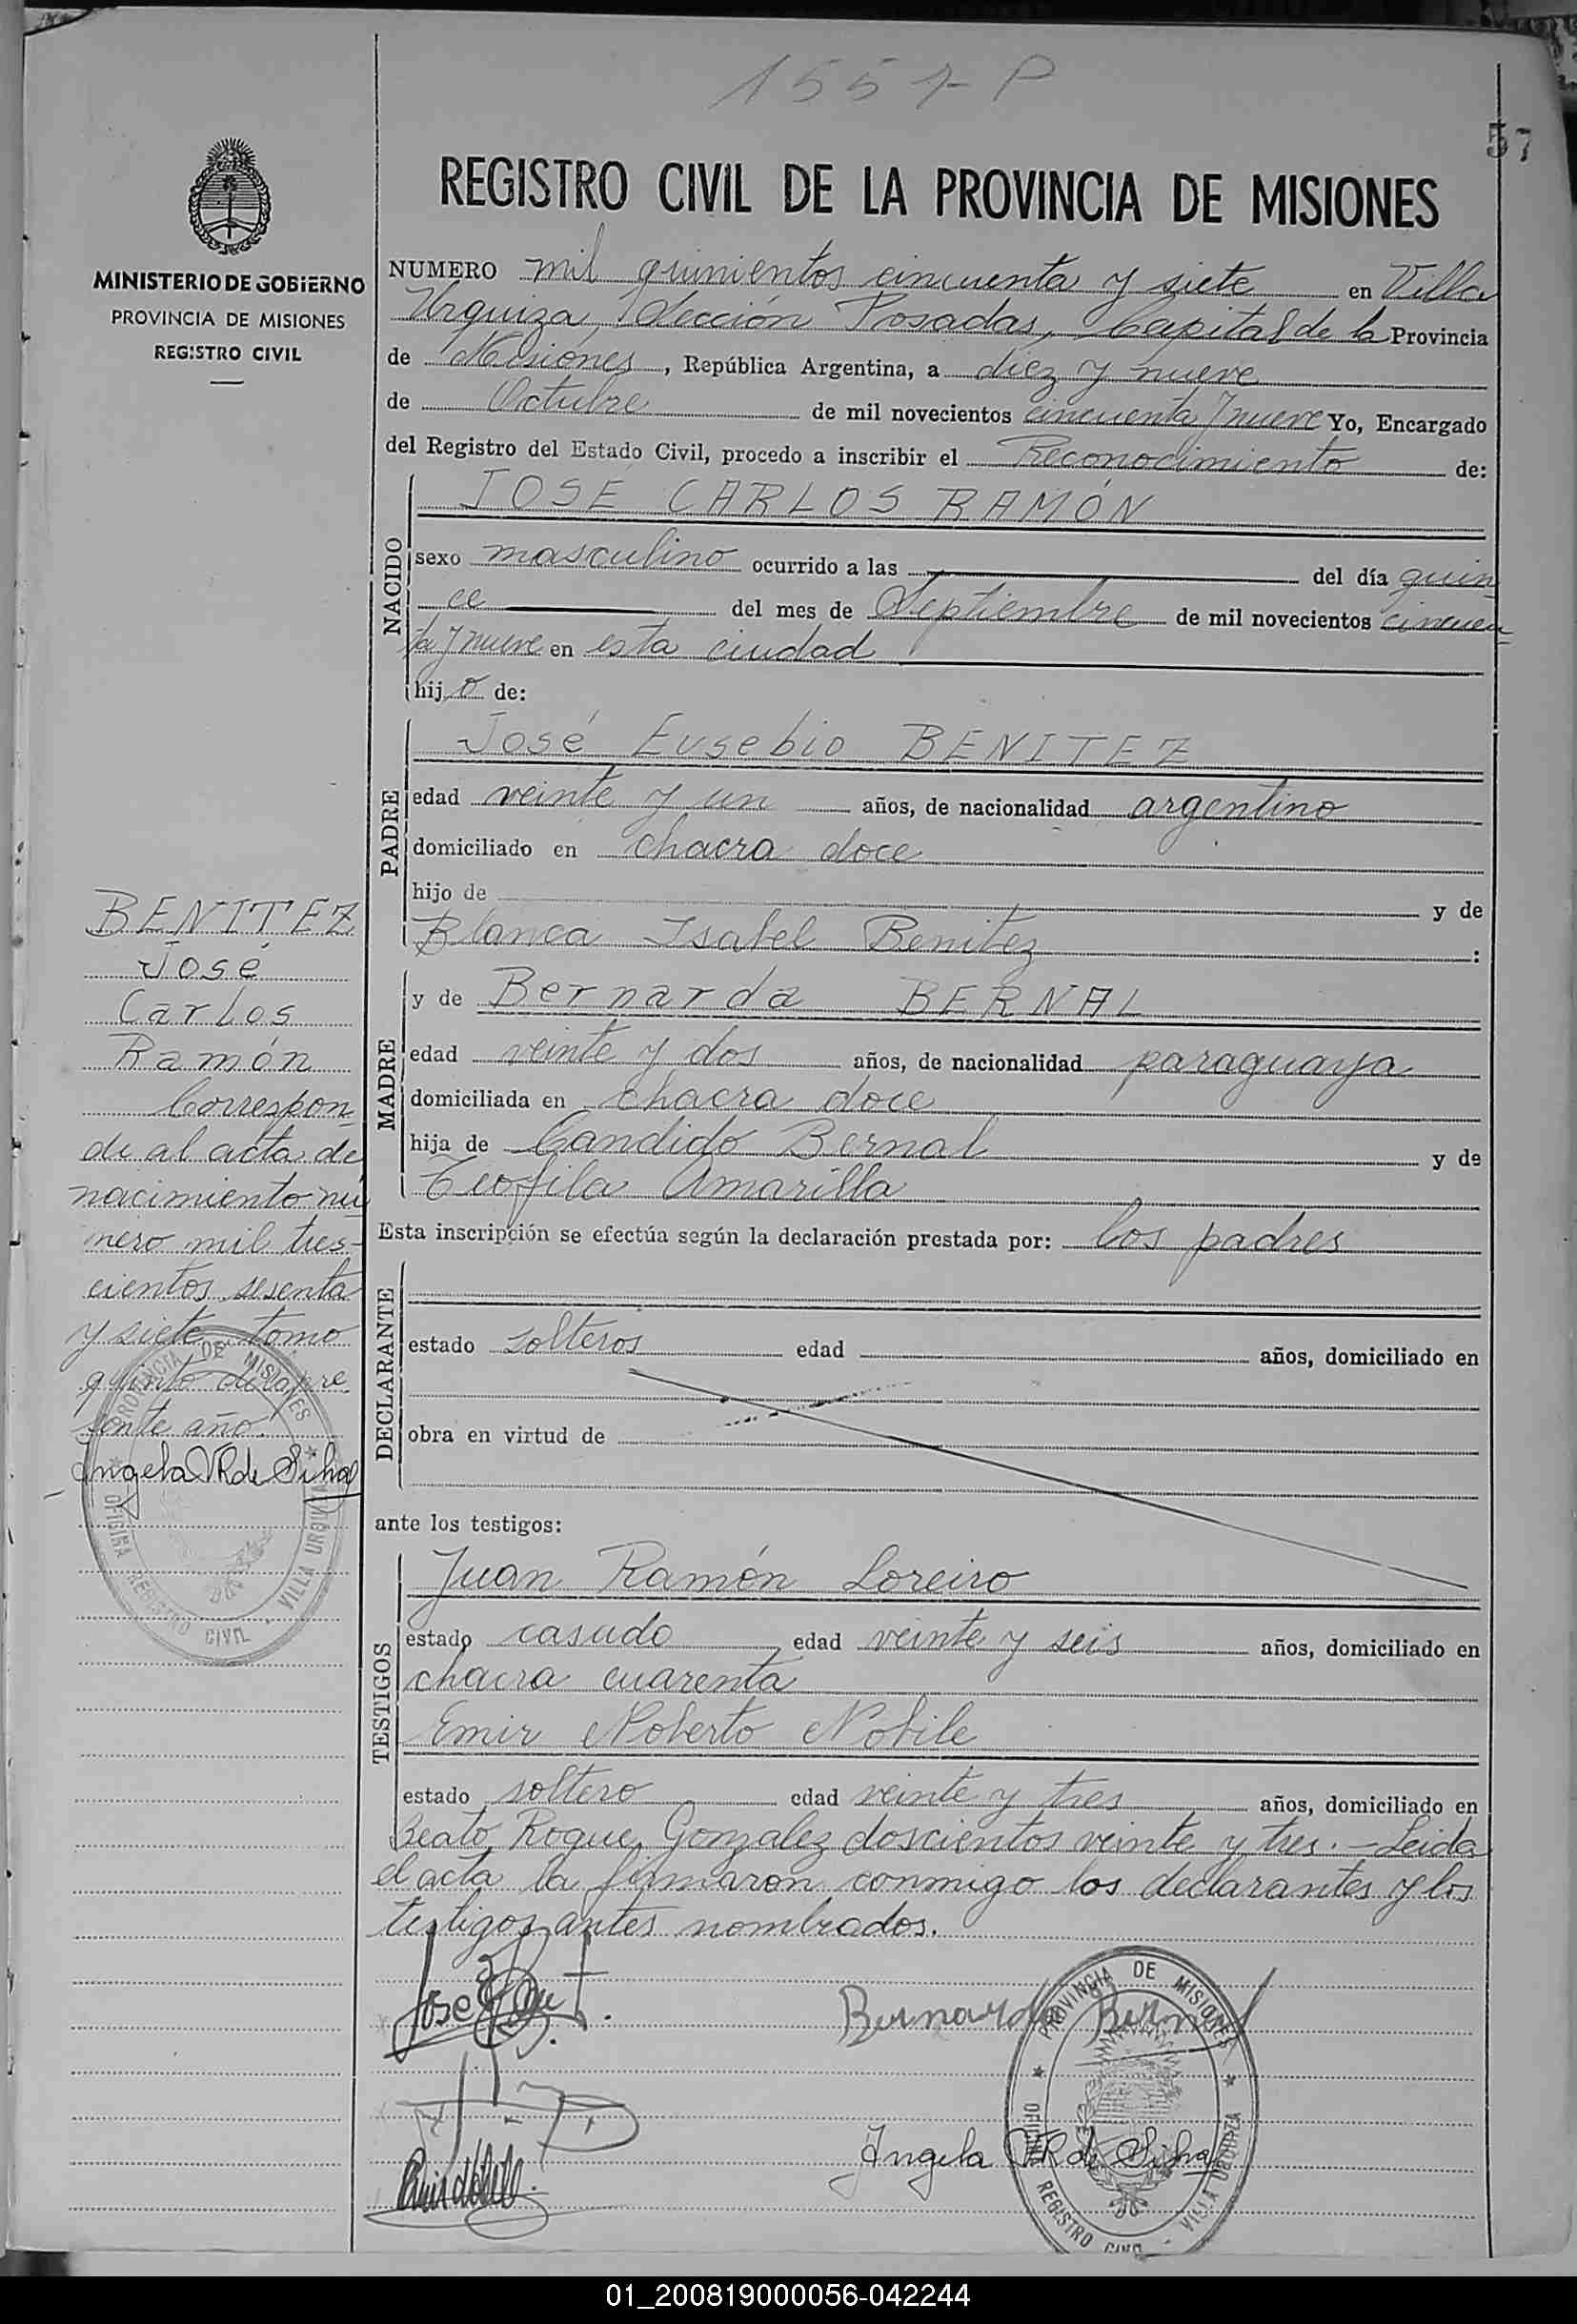 1557-P
57
MINISTERIO DE GOBIERNO
PROVINCIA DE MISIONES
REGISTRO CIVIL
REGISTRO CIVIL DE LA PROVINCIA DE MISIONES
NUMERO mil quinientos cincuenta y siete en Villa
Urquiza, Sección Posadas, Capital de la Provincia
de Misiones, República Argentina, a diez y nueve
de Octubre de mil novecientos cincuenta y nueve Yo, Encargado
del Registro del Estado Civil, procedo a inscribir el Reconocimiento de:
NACIDO
JOSE CARLOS RAMÓN
sexo masculino ocurrido a las del día quin
ce del mes de Septiembre de mil novecientos cincuen
ta y nueve en esta ciudad
hijo de:
PADRE
José Eusebio BENITEZ
edad veinte y un años, de nacionalidad argentino
domiciliado en chacra doce
hijo de y de
Blanca Isabel Benitez :
MADRE
y de Bernarda BERNAL
edad veinte y dos años, de nacionalidad paraguaya
domiciliada en chacra doce
hija de Candido Bernal y de
Teofila Amarilla
Esta inscripción se efectúa según la declaración prestada por: los padres
DECLARANTE
estado solteros edad años, domiciliado en
obra en virtud de
ante los testigos:
TESTIGOS
Juan Ramón Loreiro
estado casado edad veinte y seis años, domiciliado en
chacra cuarenta
Emir Noberto Nobile
estado soltero edad veinte y tres años, domiciliado en
Beato Roque Gonzalez doscientos veinte y tres.- Leida
el acta la firmaron conmigo los declarantes y los
testigos antes nombrados.
BENITEZ
José
Carlos
Ramón
Correspon-
de al acta de
nacimiento nú
mero mil tres-
cientos sesenta
y siete tomo
quinto del pre
sente año.
Angela VR de Silva
PROVINCIA DE MISIONES
OFICINA REGISTRO CIVIL · VILLA URQUIZA
Jose
Bernarda Bernal
Angela VR de Silva
PROVINCIA DE MISIONES
OFICINA REGISTRO CIVIL · VILLA URQUIZA
01_200819000056-042244